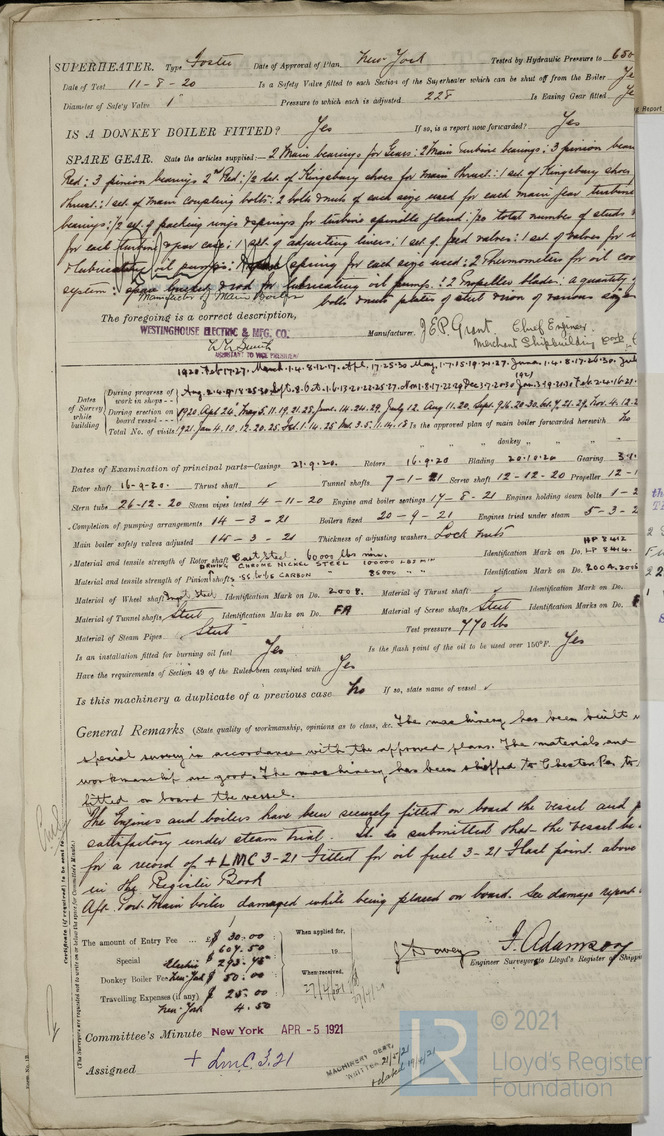 SUPERHEATER. Type Foster Date of Approval of Plan New York Tested by Hydraulic Pressure to 650
Date of Test 11-8-20 Is a Safety Valve fitted to each Section of the Superheater which can be shut off from the Boiler Ye
Diameter of Safety Valve 1" Pressure to which each is adjusted 228 Is Easing Gear fitted Ye
IS A DONKEY BOILER FITTED? Yes If so, is a report now forwarded? Yes
SPARE GEAR. State the articles supplied:— 2 Main bearings for Gears: 2 Main turbine bearings: 3 pinion bear
Red: 3 pinion bearings 2nd Red: 1/2 set of Kingsbury shoes for main thrust: 1 set of Kingsbury shoes
thrust: 1 set of main coupling bolts: 2 bolts & nuts of each size used for each main gear turbine
bearings: 1/2 set of packing rings & springs for turbine spindle gland: total number of studs
for each turbine & gear case: 1 set of adjusting liners: 1 set of feed valves: 1 set of valves for
& lubricating oil pumps: spring for each size used: 2 Thermometers for oil coo
system: spare bucket & rod for lubricating oil pumps: 2 Propeller blades: a quantity of
bolts & nuts plates of steel & iron of various sizes
Manufactr of Main Boiler
The foregoing is a correct description,
WESTINGHOUSE ELECTRIC & MFG. CO. Manufacturer. J.E.P. Grant, Chief Engineer
ASSISTANT TO VICE PRESIDENT Merchant Shipbuilding
Dates of Survey while building
During progress of work in shops --
1920 Feb. 17. 27. March. 1. 4. 8. 12. 17. Apl. 17. 25. 30 May. 1. 7. 15. 19. 21. 27. June. 1. 4. 8. 17. 26. 30. July
Aug. 2. 4. 9. 18. 25. 30 Sept. 8. Oct. 1. 6. 13. 20. 22. 25. 27. Nov. 1. 8. 17. 22. 29 Dec. 3. 7. 20. 30 1921 Jan. 3. 19. 21. 30 Feb. 2. 6. 16. 21.
During erection on board vessel ---
1920 Apl. 24. May 5. 11. 19. 21. 25. June. 14. 24. 29. July 12. Aug 11. 20. Sept. 9. 16. 20. 30. Oct. 7. 21. 29. Nov. 4. 12. 2
Total No. of visits 1921. Jan 4. 10. 12. 20. 25. Feb. 1. 14. 25 Mar. 3. 5. 11. 14. 15 Is the approved plan of main boiler forwarded herewith No
" " " donkey " " "
Dates of Examination of principal parts—Casings 21.9.20. Rotors 16.9.20 Blading 20.10.20 Gearing 3.
Rotor shaft 16-9-20. Thrust shaft ✓ Tunnel shafts 7-1-21 Screw shaft 12-12-20 Propeller 12-1
Stern tube 26-12-20 Steam pipes tested 4-11-20 Engine and boiler seatings 17-8-21 Engines holding down bolts 1-2
Completion of pumping arrangements 14-3-21 Boilers fixed 20-9-21 Engines tried under steam 5-3-2
Main boiler safety valves adjusted 14-3-21 Thickness of adjusting washers Lock nuts
Material and tensile strength of Rotor shaft Cast Steel. 60000 lbs min. Identification Mark on Do. HP 8412 LP 8414.
DRIVING CHROME NICKEL STEEL 100000 LBS MIN
Material and tensile strength of Pinion shafts .55 to .65 CARBON " 85000 " " Identification Mark on Do. 2004. 2006
Material of Wheel shaft Steel Identification Mark on Do. 2008. Material of Thrust shaft ✓ Identification Mark on Do.
Material of Tunnel shafts Steel Identification Marks on Do. FA Material of Screw shafts Steel Identification Marks on Do.
Material of Steam Pipes Steel Test pressure 770 lbs
Is an installation fitted for burning oil fuel Yes Is the flash point of the oil to be used over 150°F. Yes
Have the requirements of Section 49 of the Rules been complied with Yes
Is this machinery a duplicate of a previous case No If so, state name of vessel ✓
General Remarks (State quality of workmanship, opinions as to class, &c. The machinery has been built
special survey in accordance with the approved plans. The materials and
workmanship are good. The machinery has been shipped to Chester Pa. to
fitted on board the vessel.
The Engines and boilers have been securely fitted on board the vessel and
satisfactory under steam trial. It is submitted that the vessel be
for a record of + LMC 3-21 Fitted for oil fuel 3-21 Flash point above
in the Register Book
Aft. Port. Main boiler damaged while being placed on board. See damage report
Certificate (if required) to be sent to
(The Surveyors are requested not to write on or below the space for Committee's Minute.)
The amount of Entry Fee ... £ $ 30.00 When applied for,
Special $ 607.50 19
Electric $ 293.45
Donkey Boiler Fee New York $ 50.00 When received,
Travelling Expenses (if any) $ 25.00 27/4/21
New York 4.50
J. Davey J. Adamson
Engineer Surveyors to Lloyd's Register of Shippi
Committee's Minute New York APR -5 1921
Assigned + LMC 3.21
MACHINERY DEPT. WRITTEN 21/5/21
© 2021
LR Lloyd's Register
Foundation